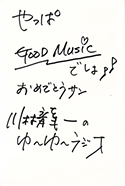 やっぱ
GOOD Music
でしょ!!
おめでとうサン
川村龍一の
ゆ〜ゆ〜ラジオ